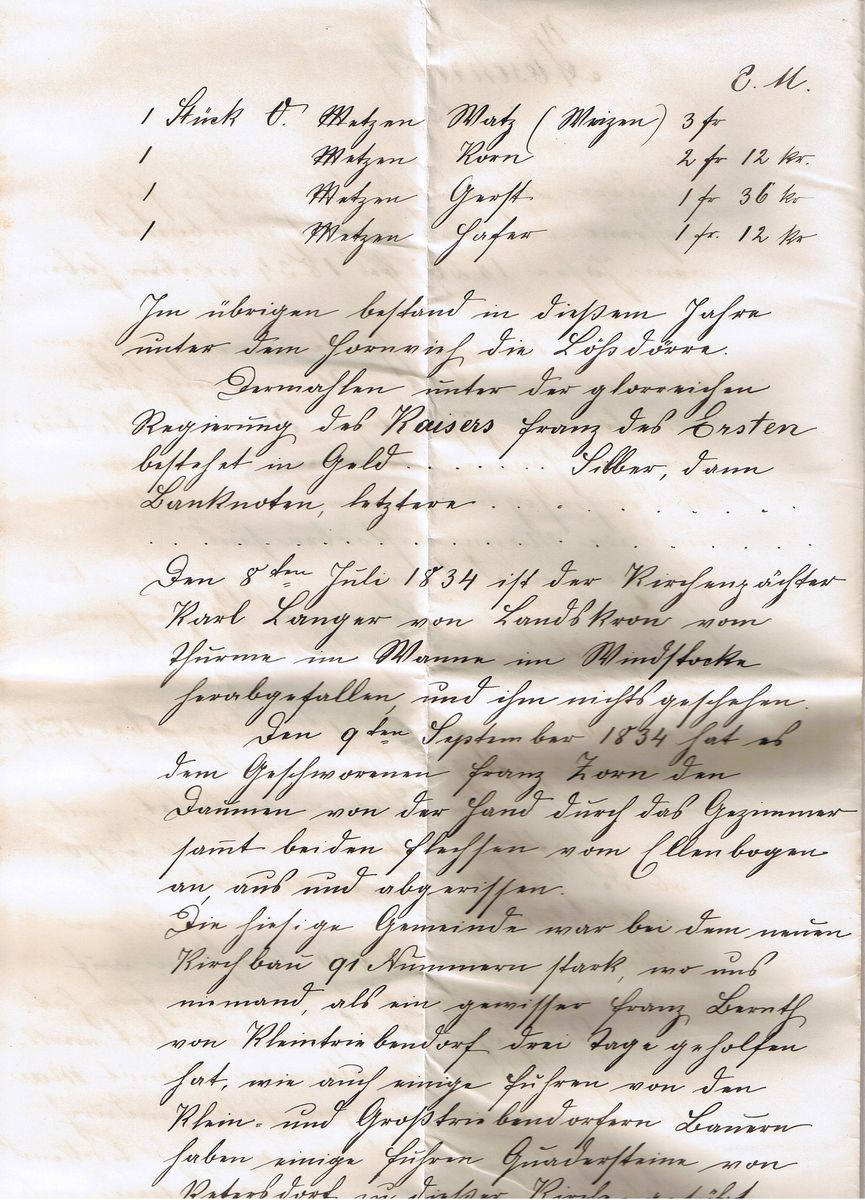 C. M.
1 Stück O. Metzen Watz (Weizen) 3 fr
1 Metzen Korn 2 fr 12 kr.
1 Metzen Gerst 1 fr 36 kr
1 Metzen Hafer 1 fr. 12 kr
Im übrigen bestand in dießem Jahre
unter dem Hornvieh die Lößdörre.
Dermahlen unter der glorreichen
Regierung des Kaisers Franz des Ersten
bestehet in Geld . . . . . . . Silber, dann
Banknoten, letztere . . . . . . . . .
. . . . . . . . . . . . . . . .
Den 8ten Juli 1834 ist der Kirchenpächter
Karl Langer von Landskron vom
Thurme im Wanne im Windstocke
herabgefallen, und ihm nichts geschehen.
Den 9ten September 1834 hat es
dem Geschworenen Franz Zorn den
Daumen von der Hand durch das Gezimmer
sammt beiden Flechsen vom Ellenbogen
an, aus und abgerissen.
Die hiesige Gemeinde war bei dem neuen
Kirchbau 91 Nummern stark, wo uns
niemand, als ein gewisser Franz
von Kleintriebendorf drei Tage geholfen
hat, wie auch einige Fuhren von den
Klein- und Großtriebendorfern Bauern
haben einige Fuhren Quadersteine von
Petersdorf zu dießer Kirche